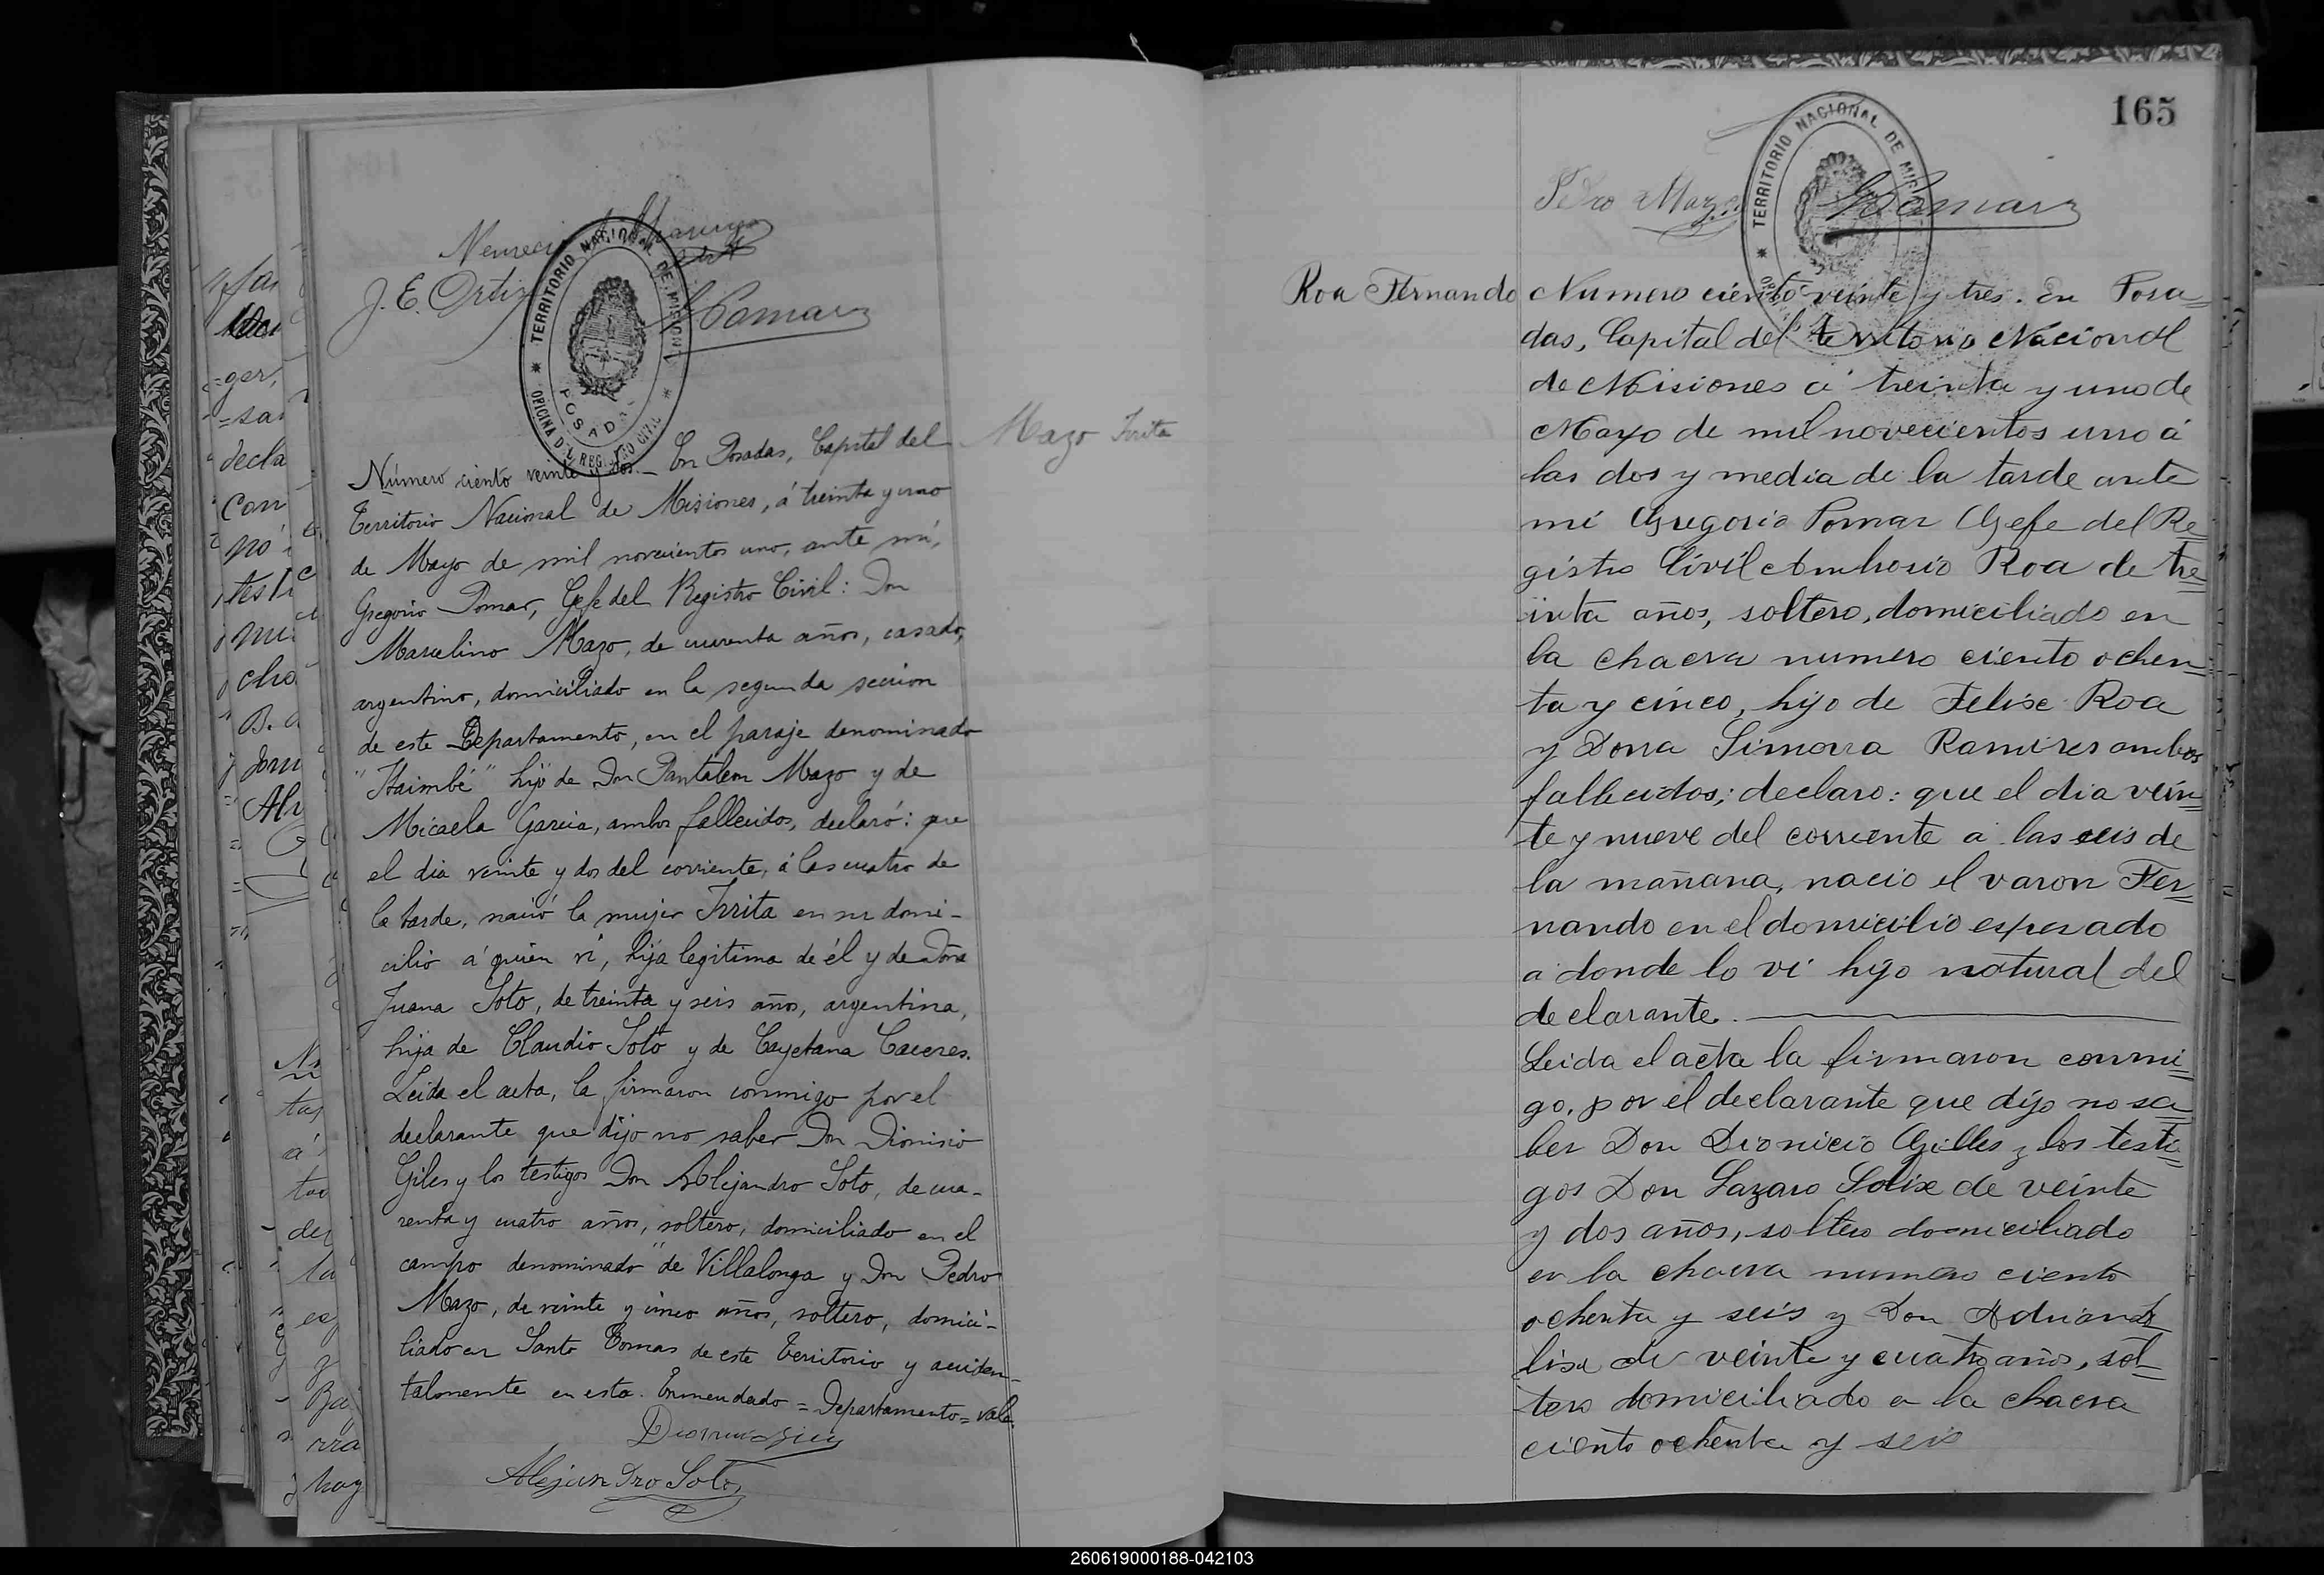 J. E. Ortiz
G Pomar
TERRITORIO NACIONAL DE MISIONES
OFICINA DEL REGISTRO CIVIL
POSADAS
Mazo Irrita
Número ciento veinte y dos.- En Posadas, Capital del
Territorio Nacional de Misiones, á treinta y uno
de Mayo de mil novecientos uno, ante mí,
Gregorio Pomar, Gefe del Registro Civil: Don
Marcelino Mazo, de cuarenta años, casado,
argentino, domiciliado en la segunda seccion
de este Departamento, en el paraje denominado
"Itaimbé" hijo de Don Pantaleon Mazo y de
Micaela Garcia, ambos fallecidos, declaró: que
el dia veinte y dos del corriente, á las cuatro de
la tarde, nació la mujer Irrita en su domi-
cilio á quien ví, hija legitima de él y de Doña
Juana Soto, de treinta y seis años, argentina,
hija de Claudio Soto y de Cayetana Caceres.
Leida el acta, la firmaron conmigo por el
declarante que dijo no saber Don Dionisio
Giles y los testigos Don Alejandro Soto, de cua-
renta y cuatro años, soltero, domiciliado en el
campo denominado "de Villalonga y Don Pedro
Mazo, de veinte y cinco años, soltero, domici-
liado en Santo Tomas de este Territorio y acciden-
talmente en esta. Enmendado = Departamento = vale.
Alejandro Soto
165
Pedro Mazo
G Pomar
TERRITORIO NACIONAL DE MISI
Roa Fernando
Numero ciento veinte y tres. En Posa=
das, Capital del territorio Nacional
de Misiones á treinta y uno de
Mayo de mil novecientos uno á
las dos y media de la tarde ante
mi Gregorio Pomar Gefe del Re=
gistro Civil Ambrosio Roa de tre=
inta años, soltero, domiciliado en
la chacra numero ciento ochen=
ta y cinco, hijo de Felise Roa
y Dona Simona Ramires ambos
fallecidos; declaro: que el dia vein=
te y nueve del corriente a las seis de
la mañana, nacio el varon Fer=
nando en el domicilio espresado
a donde lo vi hijo natural del
declarante.
Leida el acta la firmaron conmi=
go, por el declarante que dijo no sa=
ber Don Dionicio Gilles y los testi=
gos Don Lazaro Solise de veinte
y dos años, soltero domiciliado
en la chacra numero ciento
ochenta y seis y Don Adrian
de veinte y cuatro años, sol=
tero domiciliado en la chacra
ciento ochenta y seis
260619000188-042103